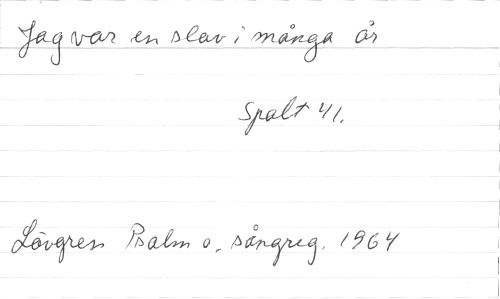 Jag var en slav i många år
Spalt 41.
Lövgren Psalm o. sångreg. 1964